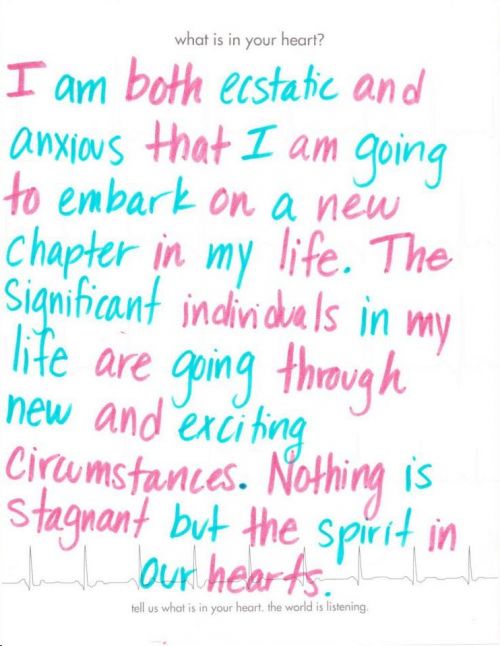 what is in your heart?
I am both ecstatic and
anxious that I am going
to embark on a new
chapter in my life. The
Significant individuals in my
life are going through
new and exciting
circumstances. Nothing is
stagnant but the spirit in
our hearts.
tell us what is in your heart. the world is listening.